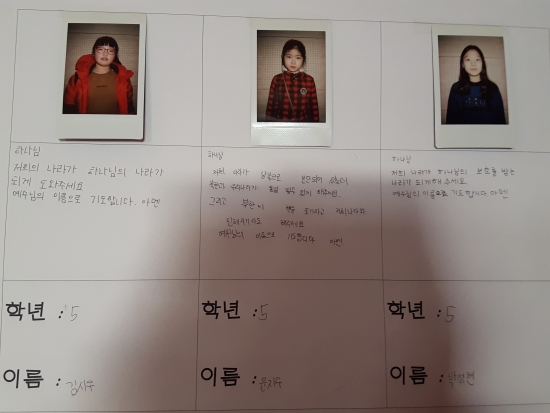 하나님
저희의 나라가 하나님의 나라가
되게 도와주세요
예수님의 이름으로 기도합니다. 아멘
학년 : 5
이름 : 김시우
하나님
저희 나라가 남북으로
우리나라가 하지 않게 해주시면,
그리고 북한이
해주세요
예수님의 이름으로 기도합니다 아멘
학년 : 5
이름 : 윤지우
하나님
저희 나라가 하나님의 보호를 받는
나라가 되게 해 주세요.
예수님의 이름으로 기도합니다. 아멘
학년 : 5
이름 :